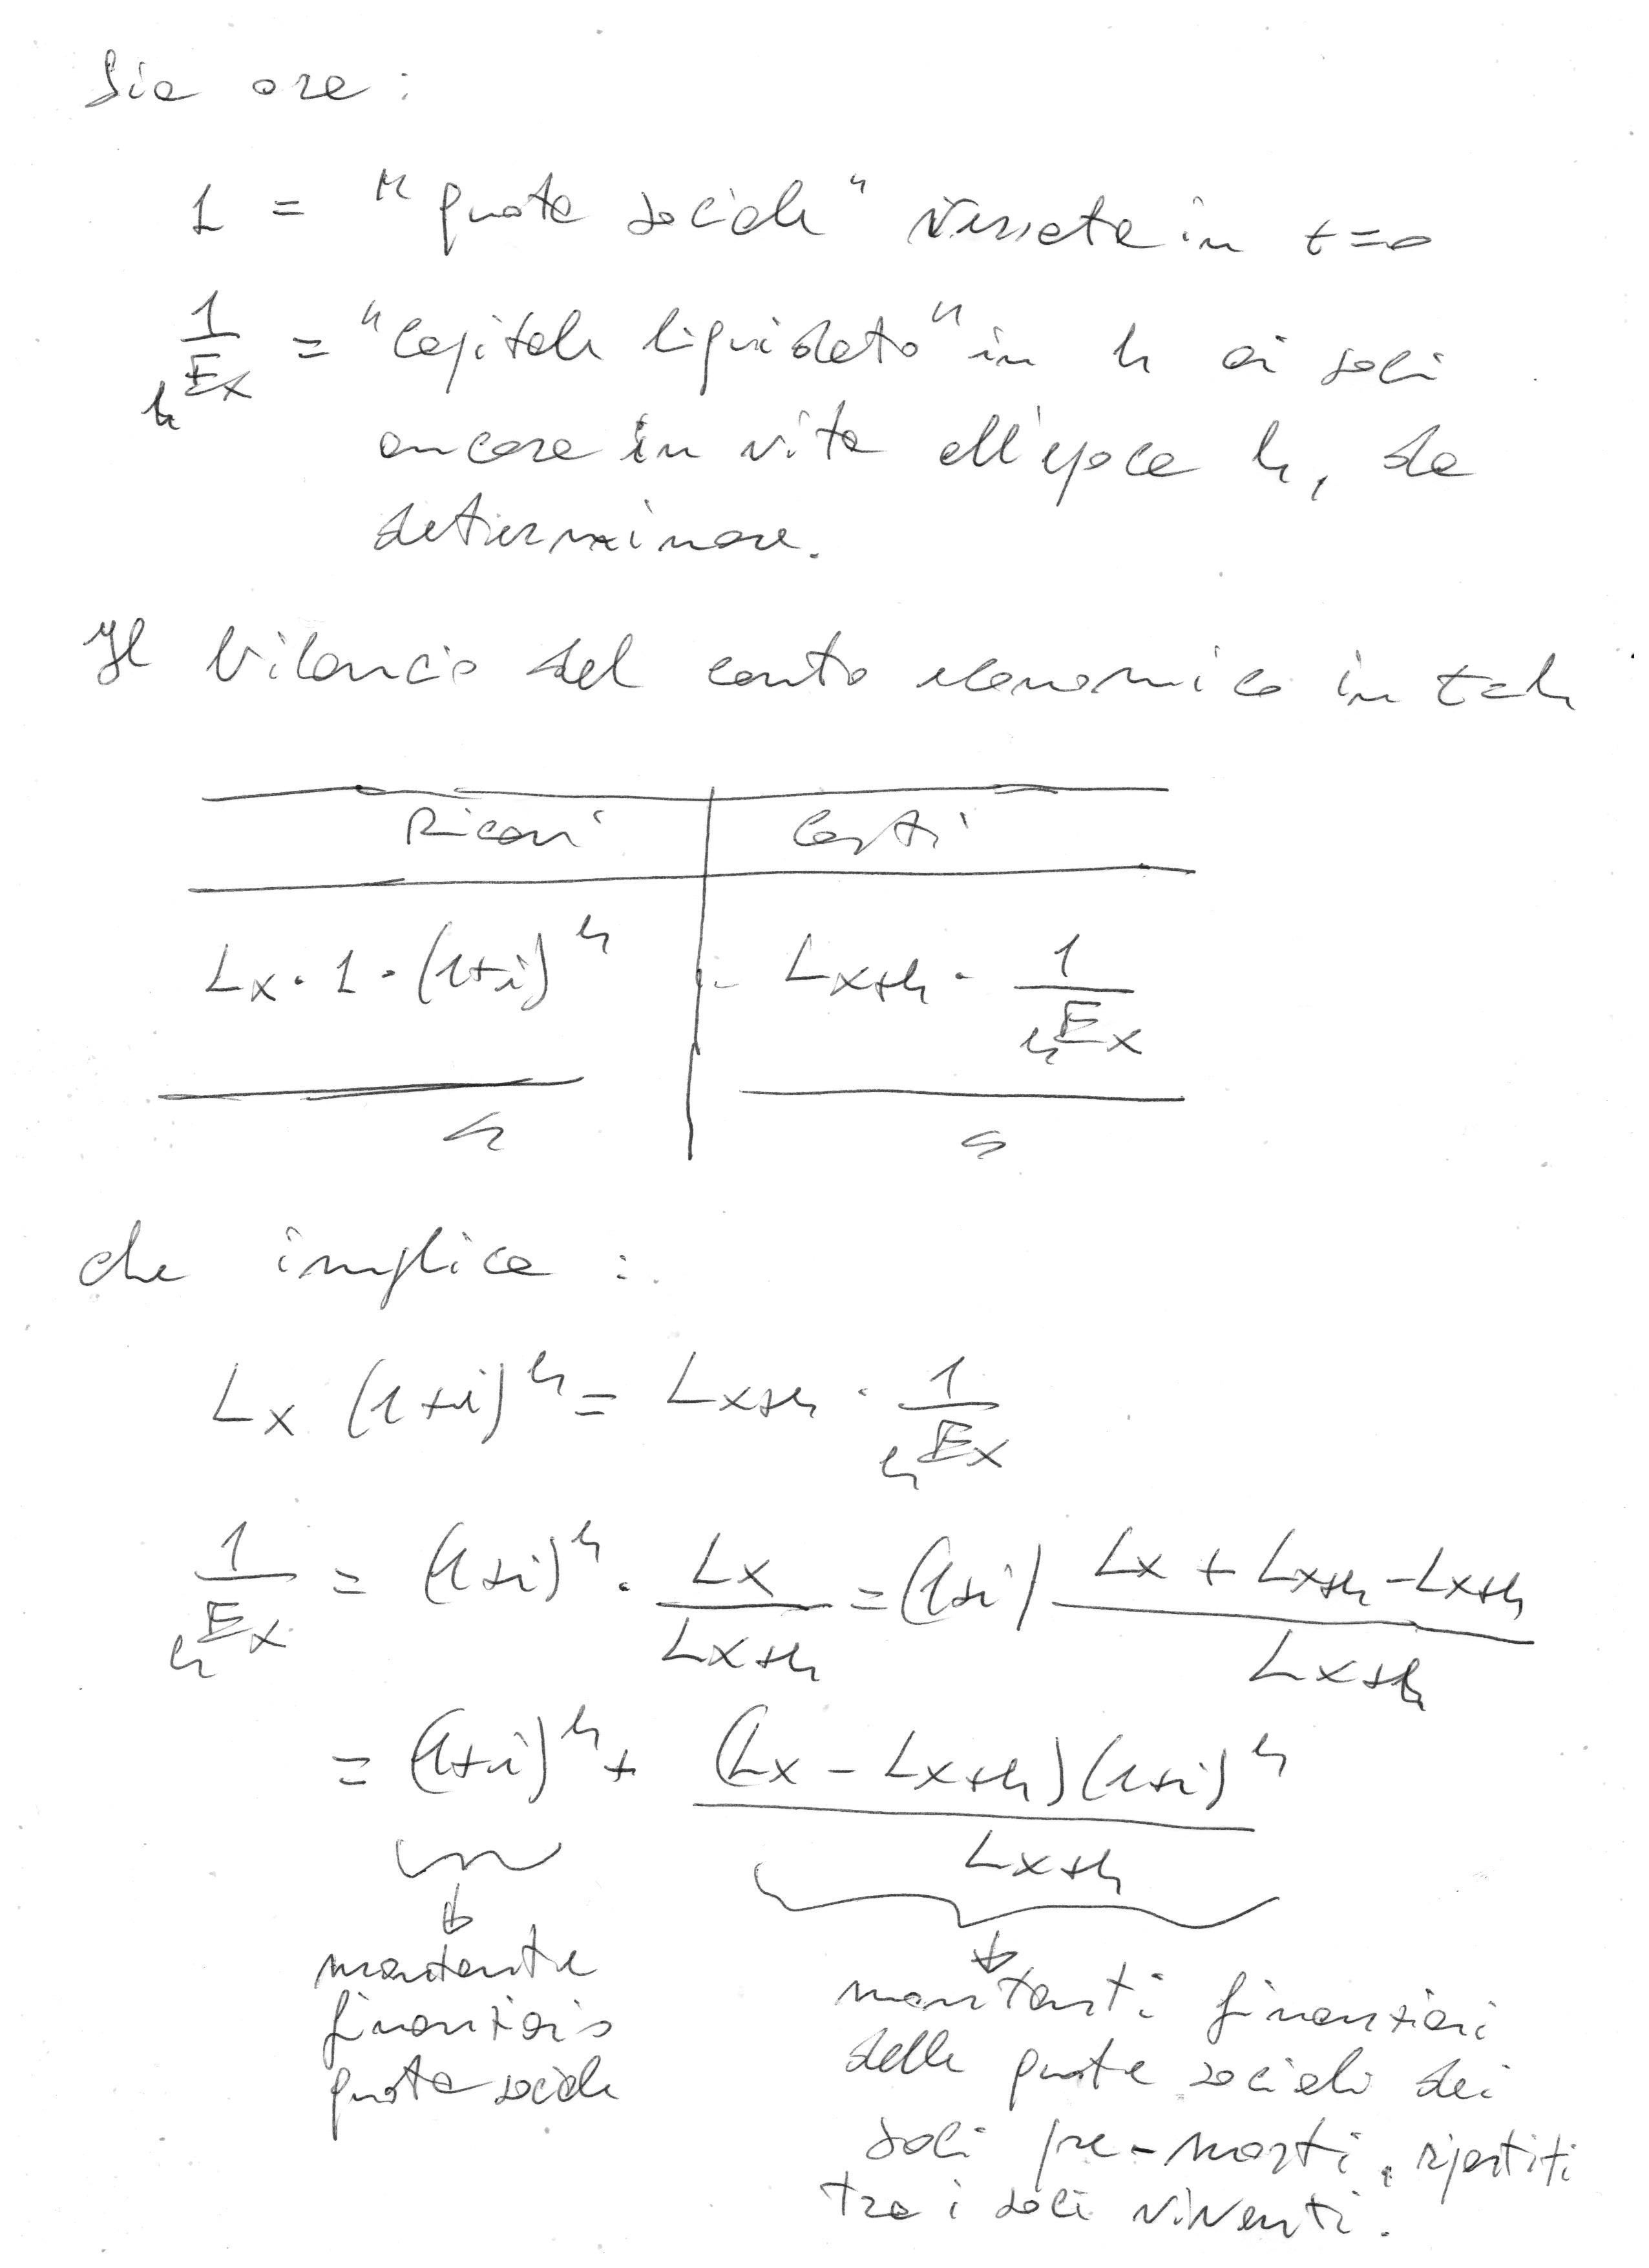 Sia ora:
1 = "quota sociale" versata in t=0
1/hEx = "capitale liquidato" in h ai soci
ancora in vita all'epoca h, da
determinare.
Il bilancio del conto economico in t=h
Ricavi Costi
Lx · 1 · (1+i)^h = Lx+h · 1/hEx
che implica:
Lx (1+i)^h = Lx+h · 1/hEx
1/hEx = (1+i)^h · Lx/Lx+h = (1+i) (Lx + Lx+h - Lx+h)/Lx+h
= (1+i)^h + (Lx - Lx+h)(1+i)^h/Lx+h
montante
finanziario
quota sociale
montanti finanziari
delle quote sociali dei
soci pre-morti, ripartiti
tra i soci viventi.